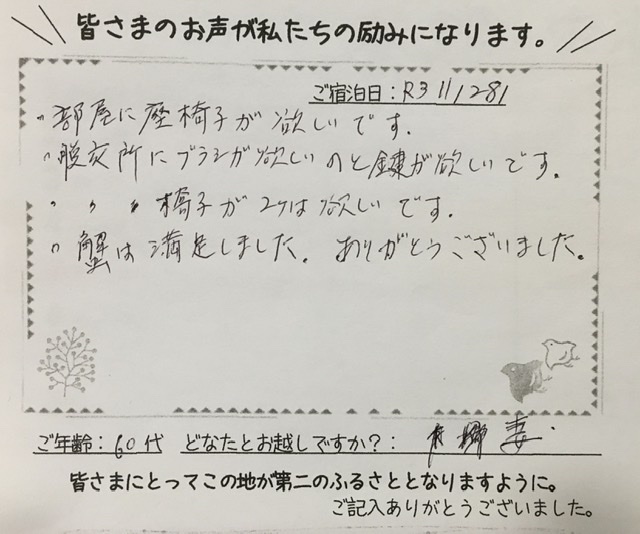 皆さまのお声が私たちの励みになります。
ご宿泊日：R3 11/28
・部屋に座椅子が欲しいです.
・脱衣所にブラシが欲しいのと鍵が欲しいです。
・〃 〃 椅子が2ケは欲しいです.
・蟹は満足しました. ありがとうございました。
ご年齢：60代 どなたとお越しですか？： 妻.
皆さまにとってこの地が第二のふるさととなりますように。
ご記入ありがとうございました。